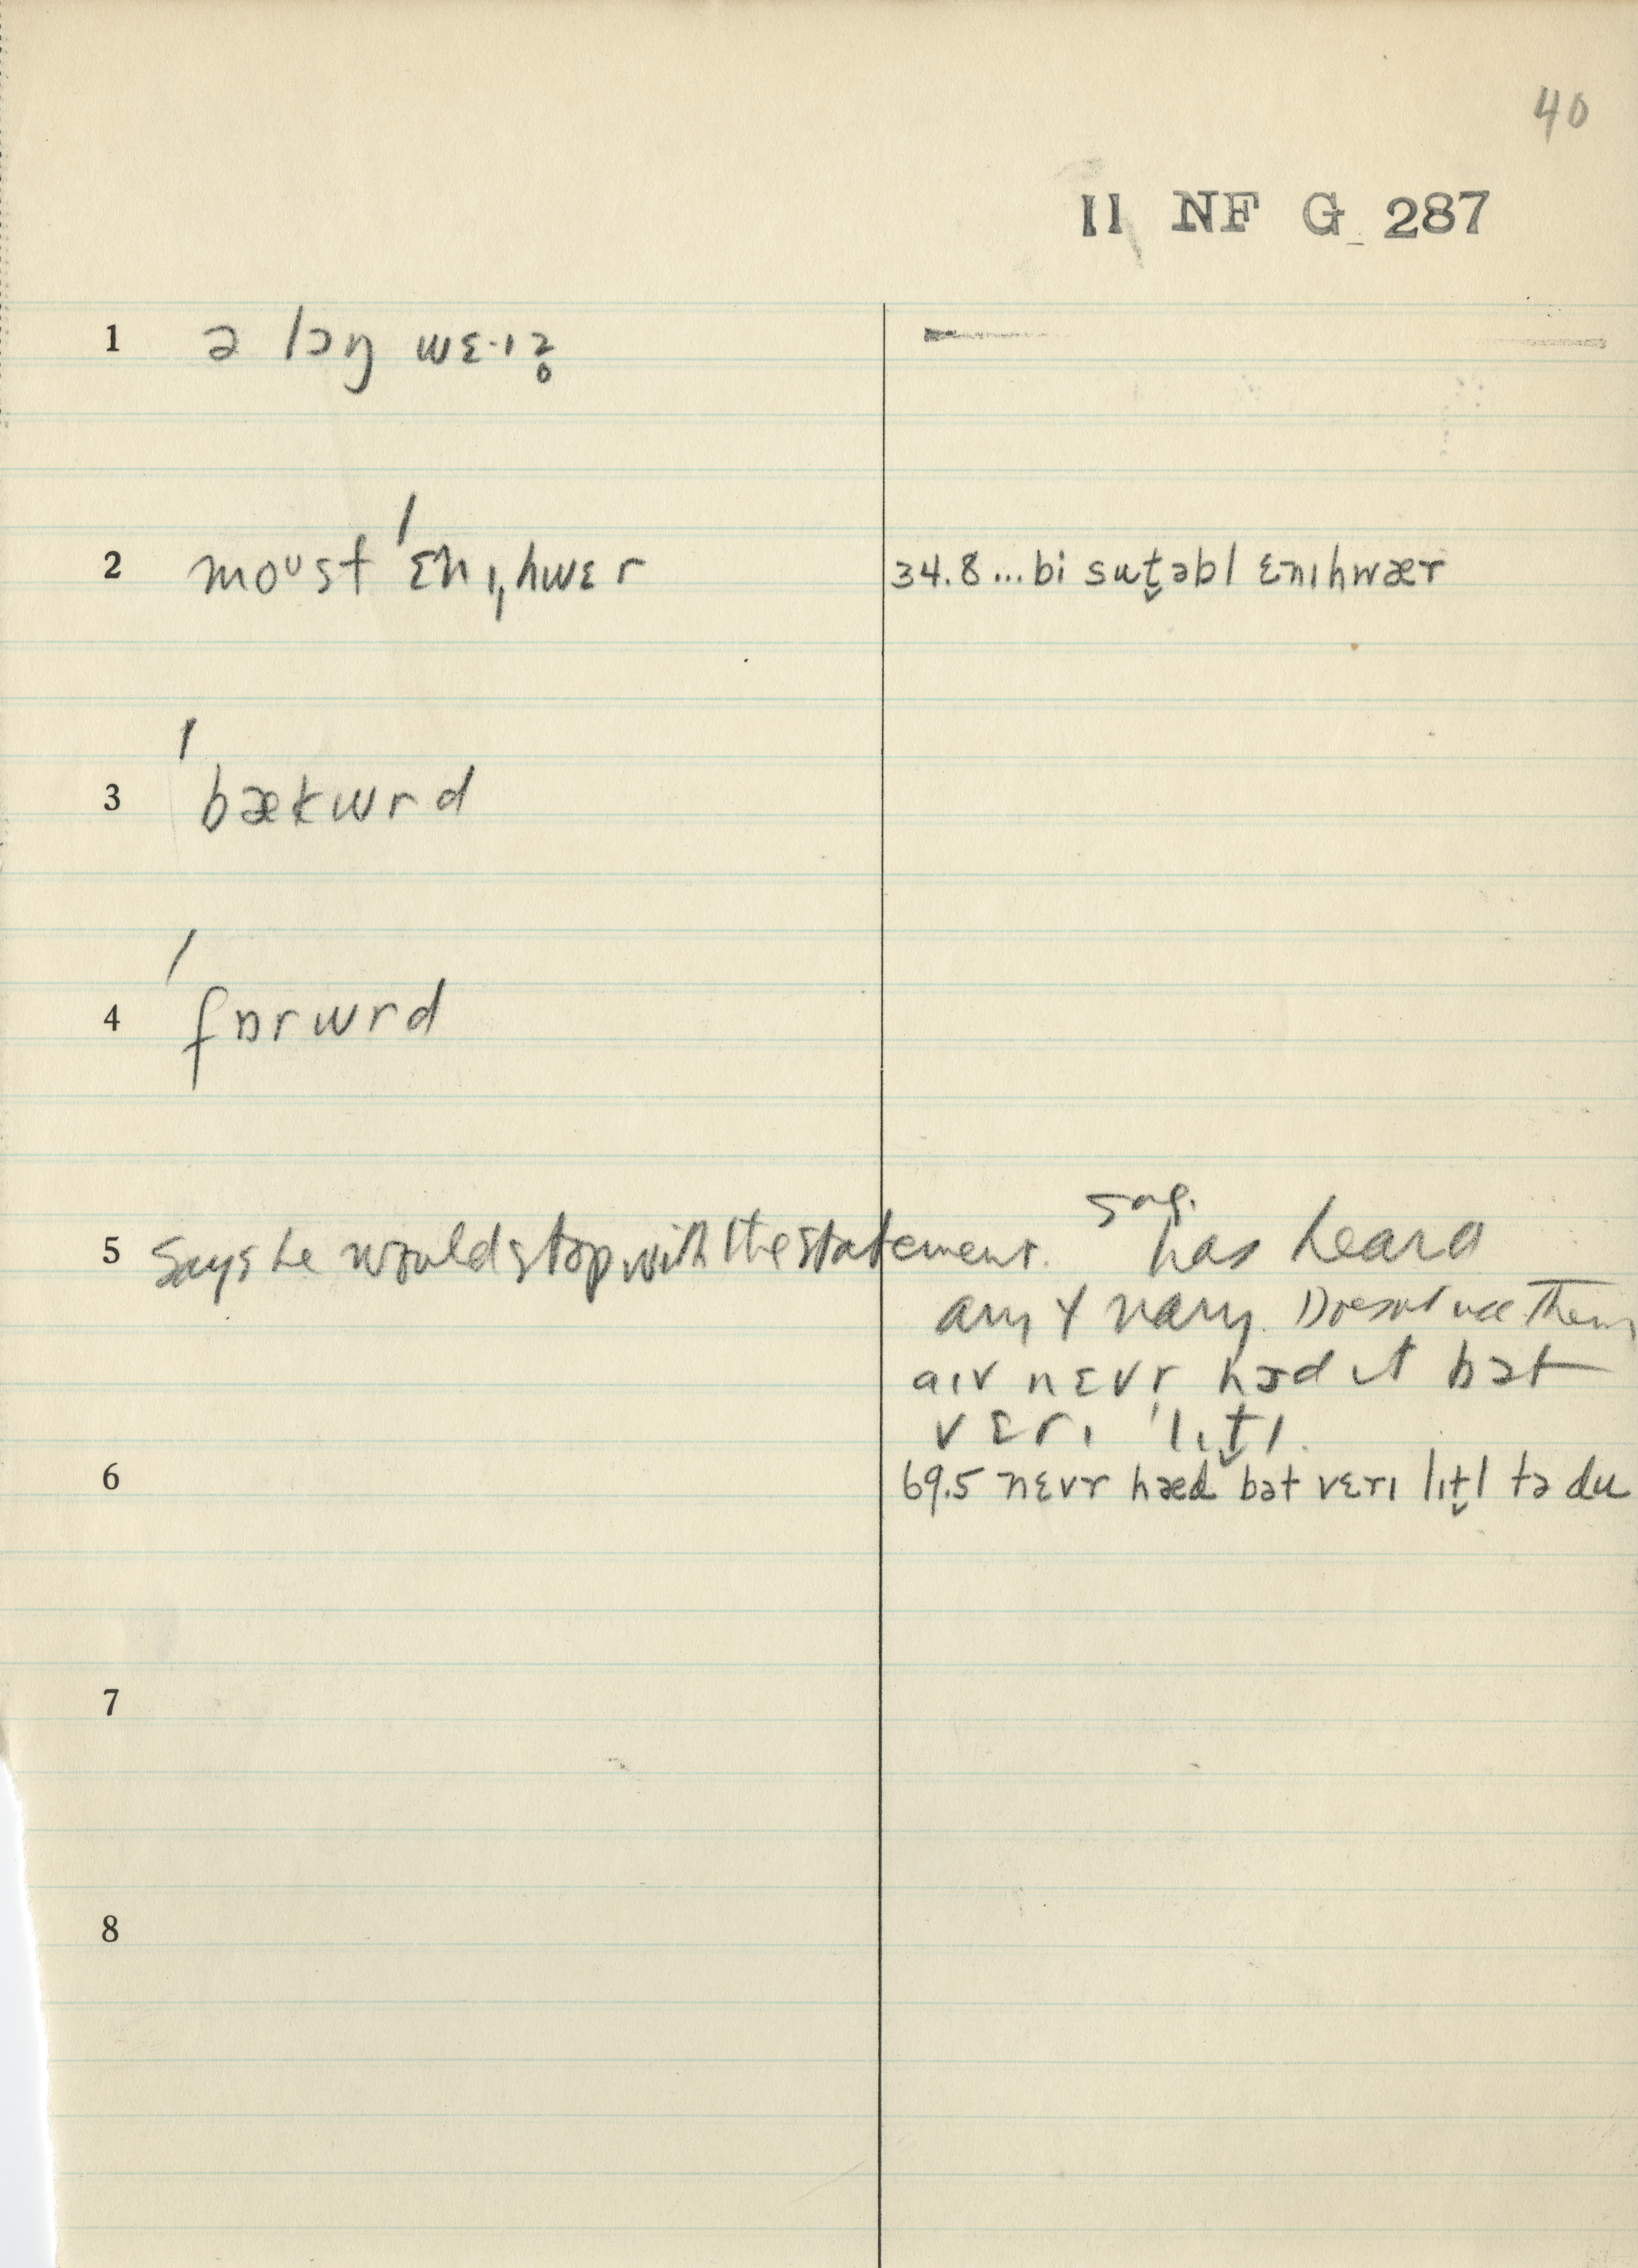 40
II NF G 287
1 ə lɔŋ wɛ·ɪz̥
2 moᵘst ˈɛnɪˌhwɛr
34.8...bi sut̬əbl ɛnɪhwær
3 ˈbækwrd
4 ˈfɒrwrd
5 Says he would stop with the statement.
sug.
has heard
ary & nary. Doesn't use them
aɪv nɛvr hæd ɪt bət
vɛrɪ ˈlɪt̬l.
6 69.5 nɛvr hæd bət vɛrɪ lɪt̬l tə du
7
8